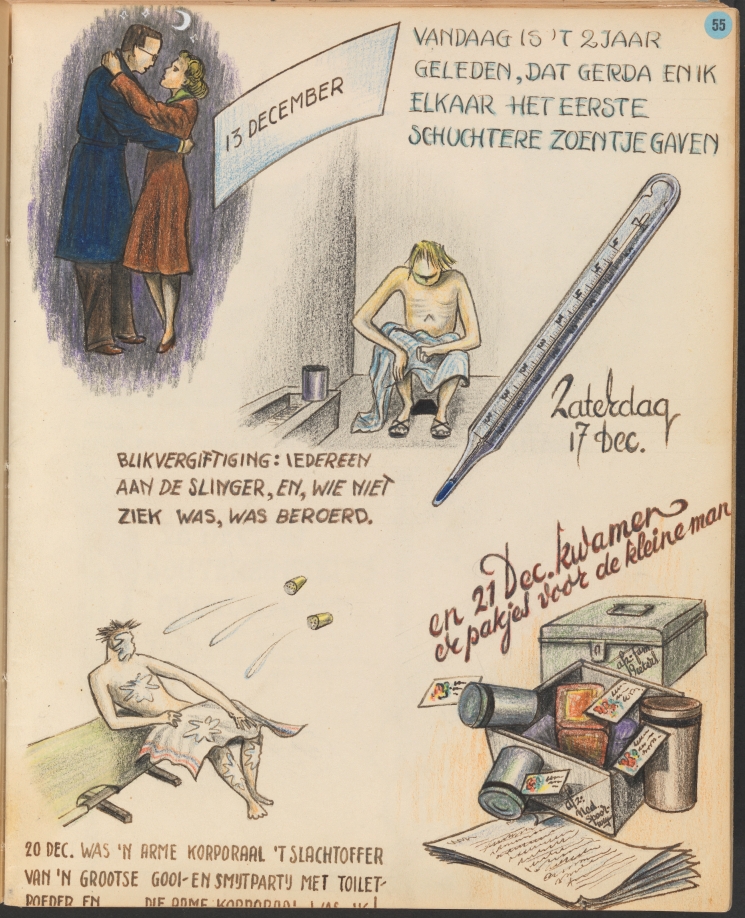 55
VANDAAG IS 'T 2 JAAR
GELEDEN, DAT GERDA EN IK
ELKAAR HET EERSTE
SCHUCHTERE ZOENTJE GAVEN
13 DECEMBER
Zaterdag
17 Dec.
BLIKVERGIFTIGING: IEDEREEN
AAN DE SLINGER, EN, WIE NIET
ZIEK WAS, WAS BEROERD.
en 21 Dec. kwamen
er pakjes voor de kleine man
afz:
afz:
Ned.
20 DEC. WAS 'N ARME KORPORAAL 'T SLACHTOFFER
VAN 'N GROOTSE GOOI- EN SMIJTPARTIJ MET TOILET-
POEDER EN DIE ARME KORPORAAL WAS IK!